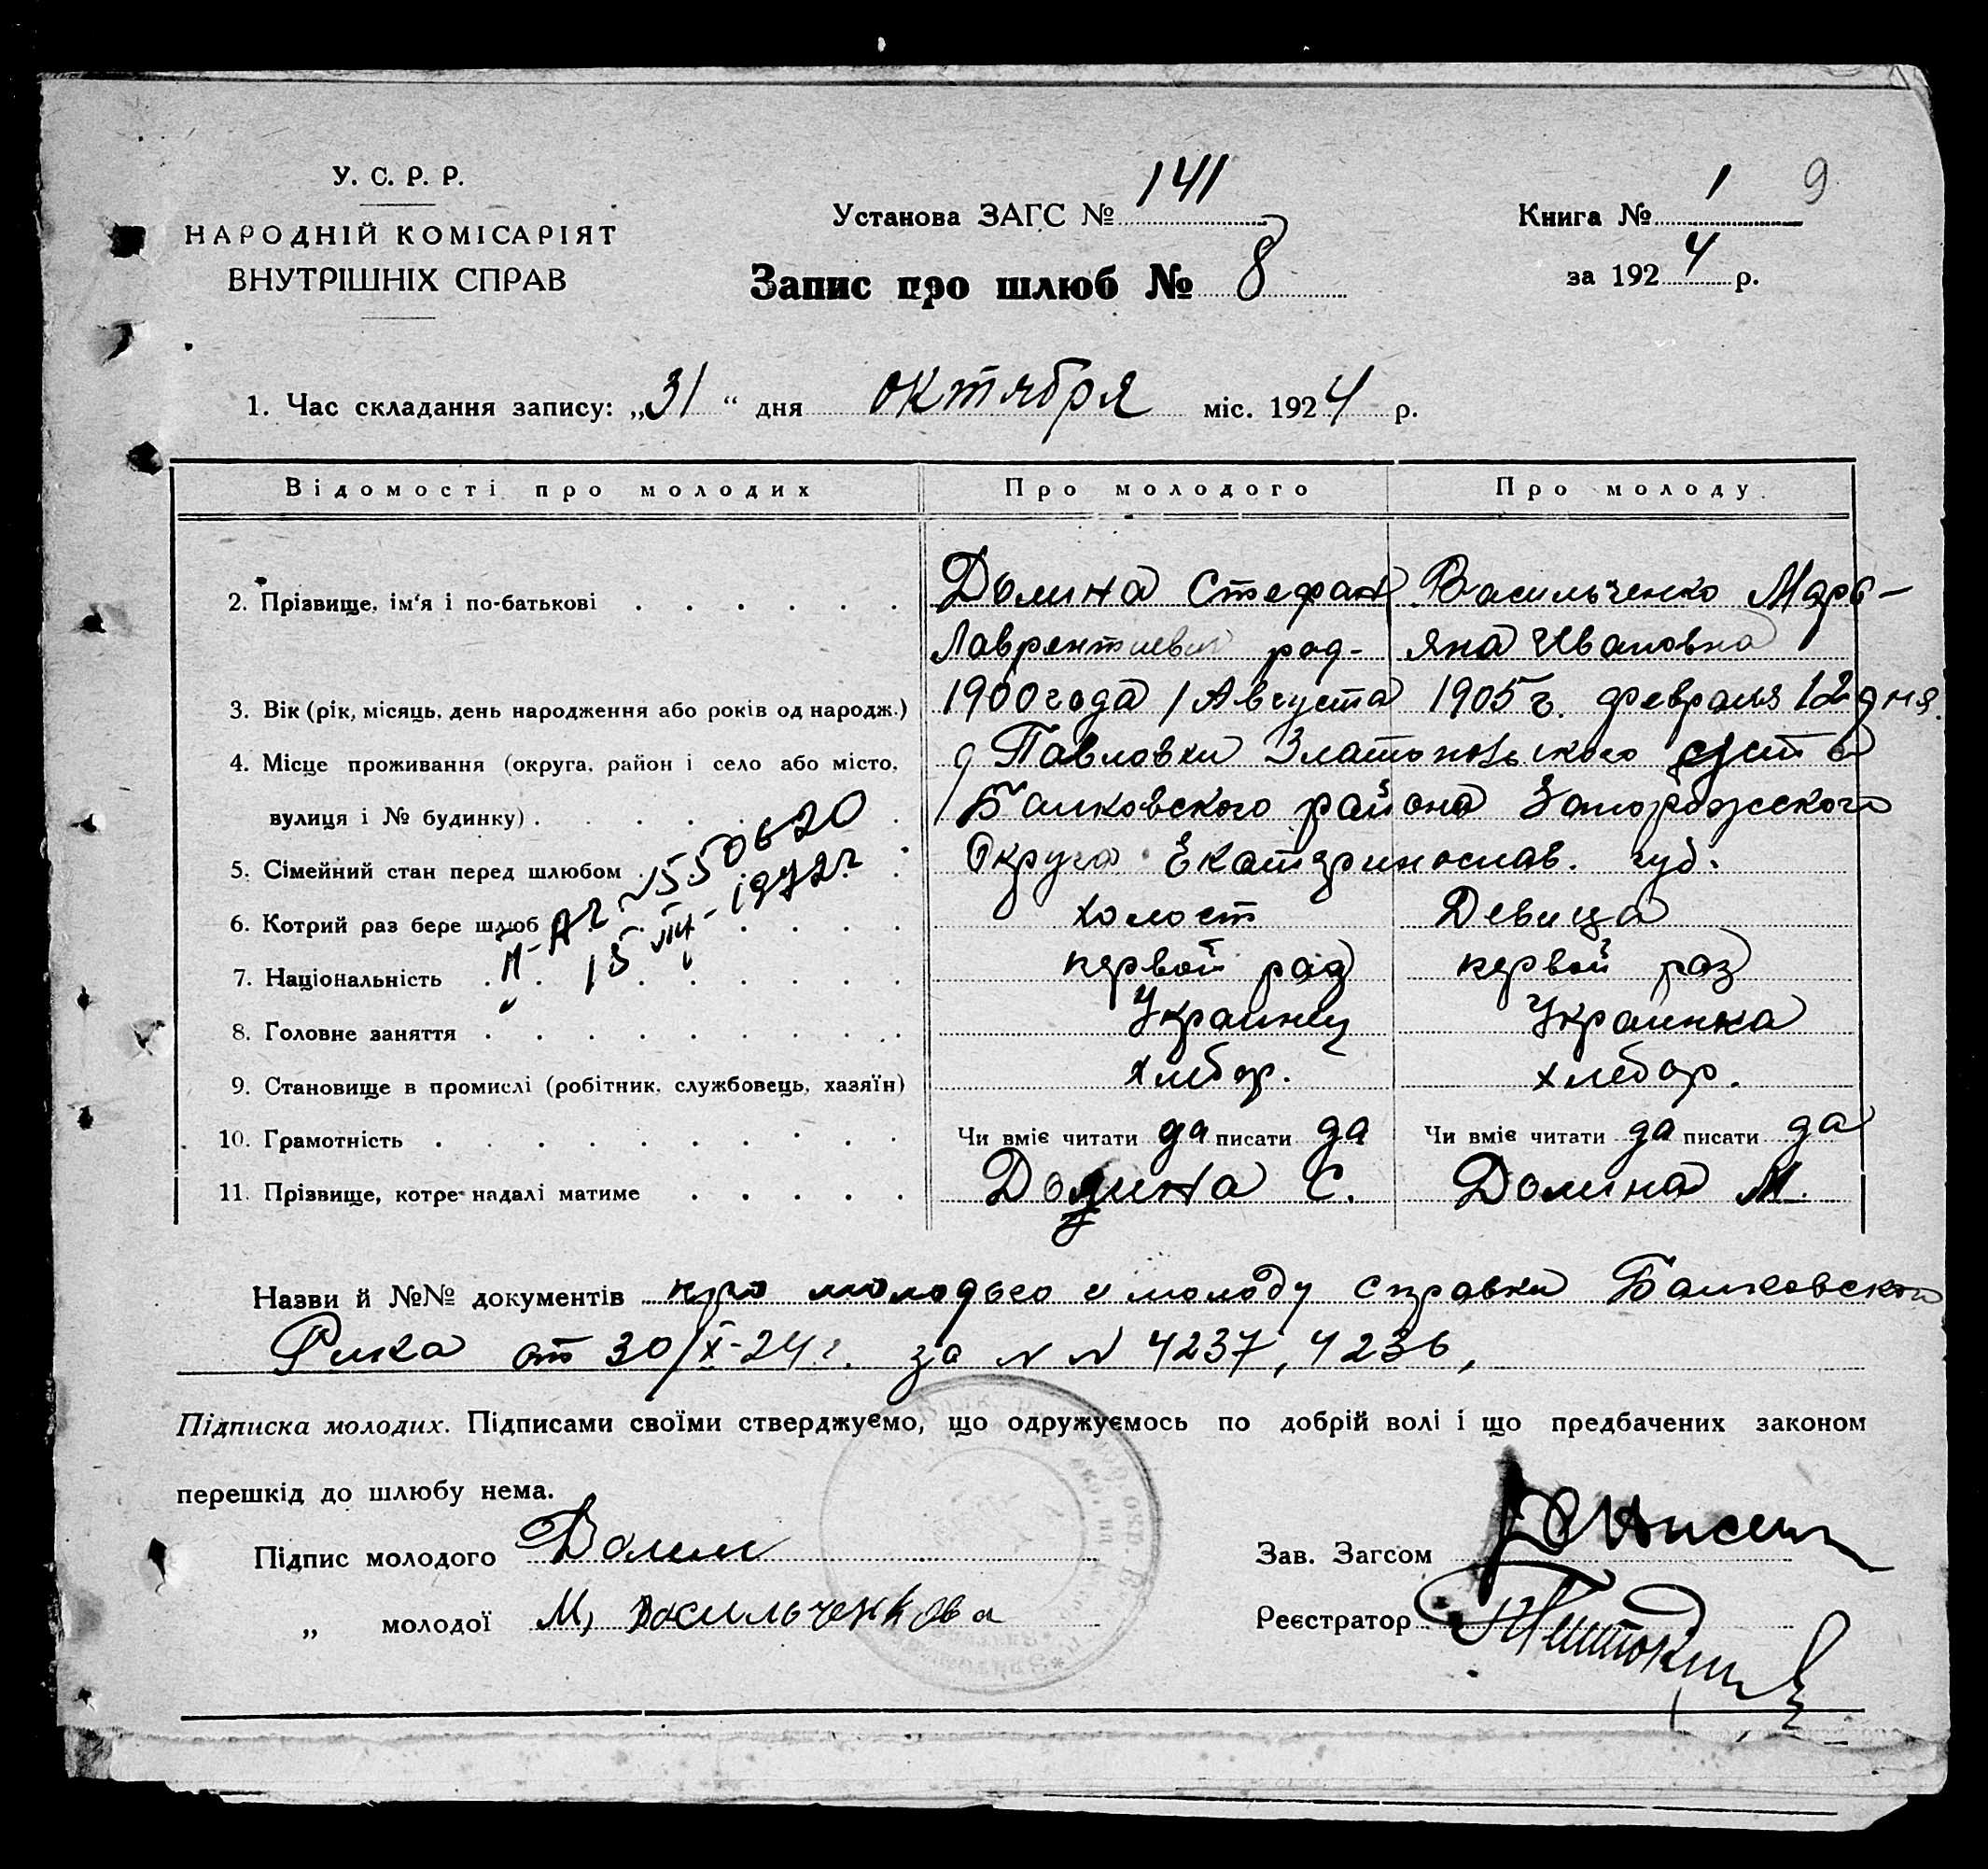 У. С. Р. Р.
НАРОДНІЙ КОМІСАРІЯТ
ВНУТРІШНІХ СПРАВ
Установа ЗАГС № 141
Запис про шлюб № 8
Книга № 1 9
за 1924 р.
1. Час складання запису: „31“ дня октября міс. 1924 р.
Відомості про молодих Про молодого Про молоду
2. Прізвище, ім'я і по-батькові Долина Стефан Васильченко Марь-
Лаврентиевич род- яна Ивановна
3. Вік (рік, місяць, день народження або років од народж.) 1900 года 1 Августа 1905 г. февраля 12 дня.
4. Місце проживання (округа, район і село або місто, д Павловки Златопольского
вулиця і № будинку) Балковского района Запорожского
5. Сімейний стан перед шлюбом Округа Екатеринослав. губ.
6. Котрий раз бере шлюб холост Девица
7. Національність первый раз первый раз
8. Головне заняття Украинец Украинка
9. Становище в промислі (робітник, службовець, хазяїн) хлебор. хлебор.
10. Грамотність Чи вміє читати да писати да Чи вміє читати да писати да
11. Прізвище, котре надалі матиме Долина С. Долина М.
II-АГ №550620
15 VIII-1972г
Назви й №№ документів про молодого и молоду справки Балковской
Рика от 30/X-24 г. за N N 4237, 4236,
Підписка молодих. Підписами своїми стверджуємо, що одружуємось по добрій волі і що предбачених законом
перешкід до шлюбу нема.
Підпис молодого Долин
„ молодої М, Васильченкова
Зав. Загсом
Реєстратор